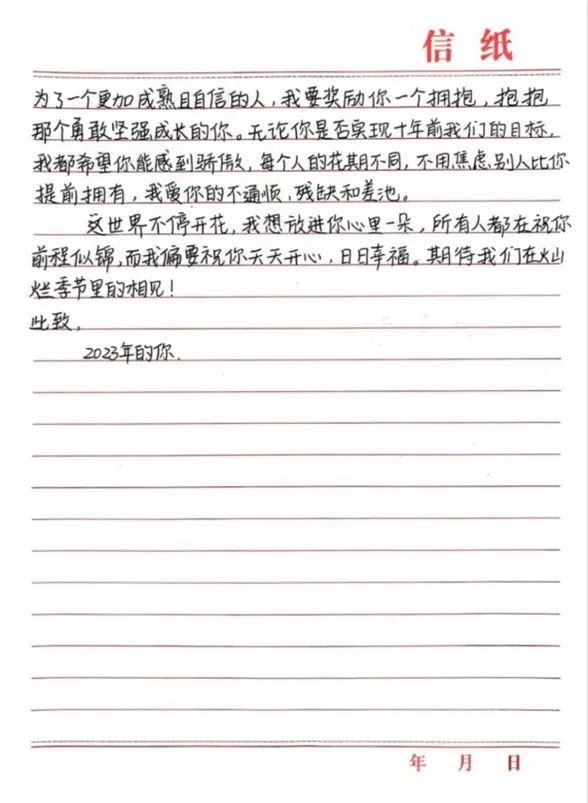 信纸
为了一个更加成熟且自信的人，我要奖励你一个拥抱，抱抱
那个勇敢坚强成长的你。无论你是否实现十年前我们的目标，
我都希望你能感到骄傲，每个人的花期不同，不用焦虑别人比你
提前拥有，我爱你的不通顺，残缺和差池。
这世界不停开花，我想放进你心里一朵，所有人都在祝你
前程似锦，而我偏要祝你天天开心，日日幸福。期待我们在灿
烂季节里的相见！
此致，
2023年的你.
年 月 日